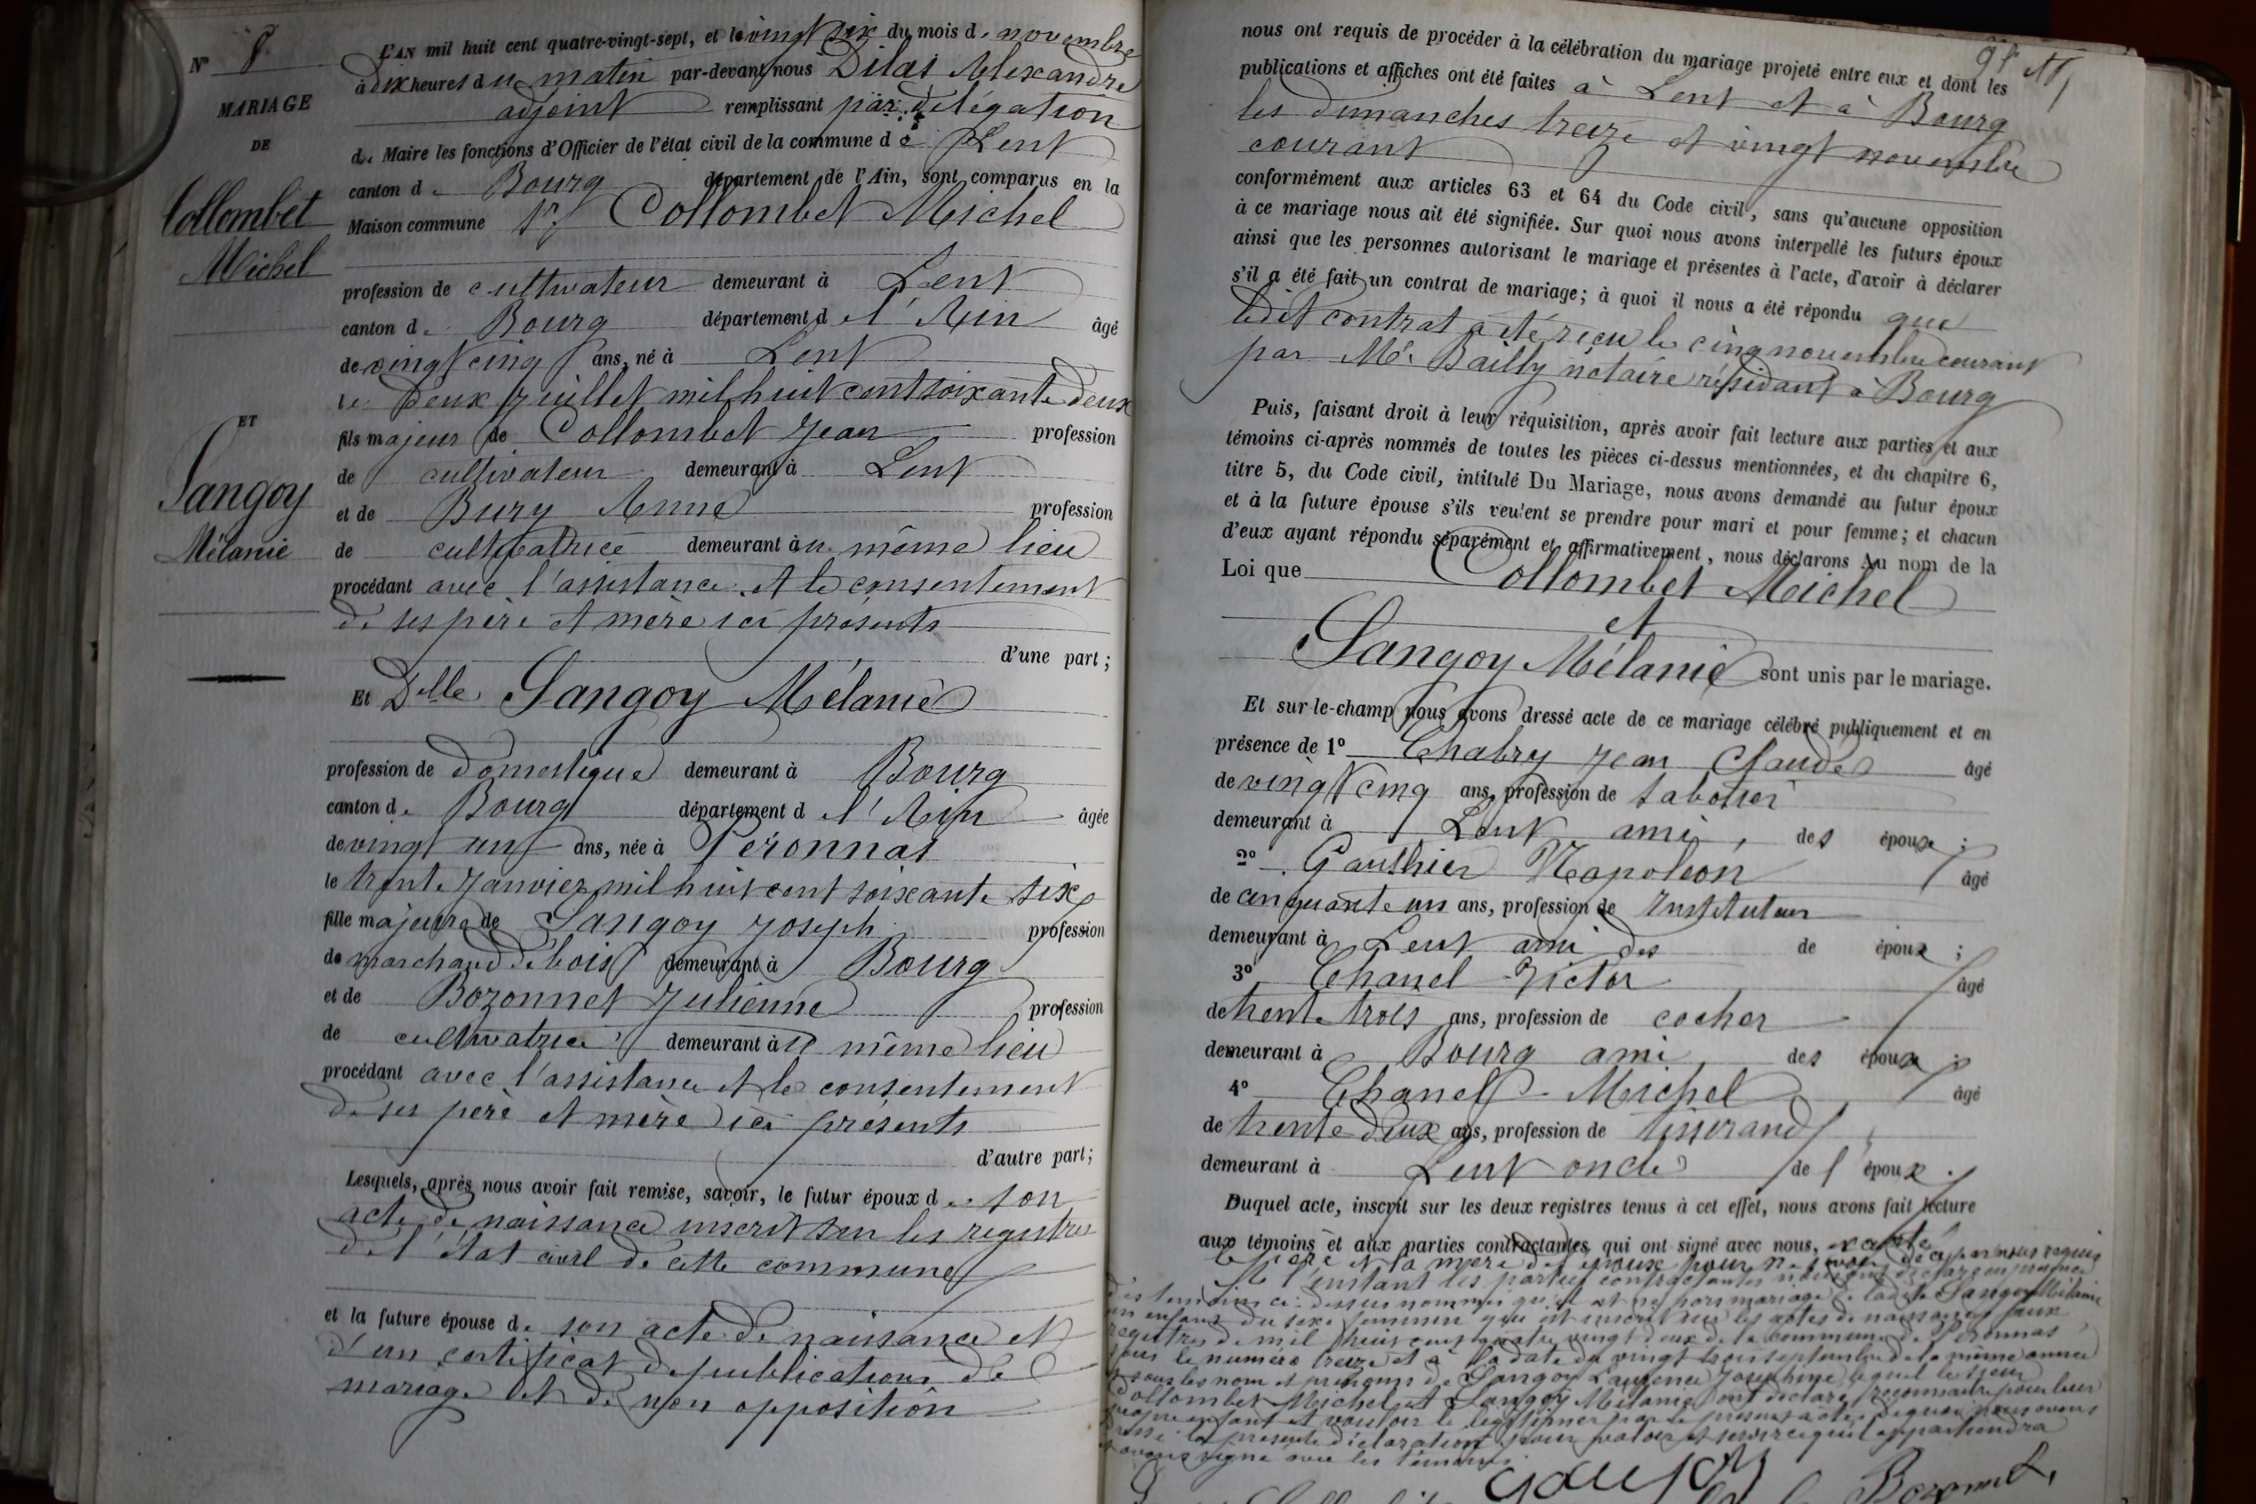 N° 8
MARIAGE
DE
Collombet
Michel
ET
Sangoy
Mélanie
L'AN mil huit cent quatre-vingt-sept, et le vingt six du mois de novembre
à dix heures du matin par-devant nous Dilas Alexandre
adjoint remplissant par délégation
de Maire les fonctions d'Officier de l'état civil de la commune de Lent
canton de Bourg département de l'Ain, sont comparus en la
Maison commune Sr Collombet Michel
profession de cultivateur demeurant à Lent
canton de Bourg département de l'Ain âgé
de vingt cinq ans, né à Lent
le deux juillet mil huit cent soixante deux
fils majeur de Collombet Jean profession
de cultivateur demeurant à Lent
et de Bury Anne profession
de cultivatrice demeurant au même lieu
procédant avec l'assistance et le consentement
de ses père et mère ici présents
d'une part ;
Et Dlle Sangoy Mélanie
profession de domestique demeurant à Bourg
canton de Bourg département de l'Ain âgée
de vingt un ans, née à Péronnas
le trente janvier mil huit cent soixante six
fille majeure de Sangoy Joseph profession
de marchand de bois demeurant à Bourg
et de Bozonnet Julienne profession
de cultivatrice demeurant au même lieu
procédant avec l'assistance et le consentement
de ses père et mère ici présents
d'autre part ;
Lesquels, après nous avoir fait remise, savoir, le futur époux de son
acte de naissance inscrit sur les registres
de l'état civil de cette commune
et la future épouse de son acte de naissance et
d'un certificat de publications de
mariage et de non opposition
nous ont requis de procéder à la célébration du mariage projeté entre eux et dont les
publications et affiches ont été faites à Lent et à Bourg
les dimanches treize et vingt novembre
courant
conformément aux articles 63 et 64 du Code civil, sans qu'aucune opposition
à ce mariage nous ait été signifiée. Sur quoi nous avons interpellé les futurs époux
ainsi que les personnes autorisant le mariage et présentes à l'acte, d'avoir à déclarer
s'il a été fait un contrat de mariage ; à quoi il nous a été répondu que
ledit contrat a été reçu le cinq novembre courant
par Me Bailly notaire résidant à Bourg
Puis, faisant droit à leur réquisition, après avoir fait lecture aux parties et aux
témoins ci-après nommés de toutes les pièces ci-dessus mentionnées, et du chapitre 6,
titre 5, du Code civil, intitulé Du Mariage, nous avons demandé au futur époux
et à la future épouse s'ils veulent se prendre pour mari et pour femme ; et chacun
d'eux ayant répondu séparément et affirmativement, nous déclarons Au nom de la
Loi que Collombet Michel
et
Sangoy Mélanie sont unis par le mariage.
Et sur-le-champ nous avons dressé acte de ce mariage célébré publiquement et en
présence de 1° Chabry Jean Claude âgé
de vingt cinq ans, profession de sabotier
demeurant à Lent ami des époux ;
2° Gauthier Napoléon âgé
de cinquante un ans, profession de Instituteur
demeurant à Lent ami des de époux ;
3° Chanel Victor âgé
de trente trois ans, profession de cocher
demeurant à Bourg ami des époux ;
4° Chanel Michel âgé
de trente deux ans, profession de tisserand
demeurant à Lent oncle de l'époux .
Duquel acte, inscrit sur les deux registres tenus à cet effet, nous avons fait lecture
aux témoins et aux parties contractantes, qui ont signé avec nous, excepté
le père et la mère de l'époux pour ne savoir de ce par nous requis
Et à l'instant les parties contractantes nous ont déclaré en présence
des témoins ci-dessus nommés qu'il est né hors mariage de ladite Sangoy Mélanie
un enfant du sexe féminin qui est inscrit sur les actes de naissances aux
registres de mil huit cent quatre vingt deux de la commune de Péronnas
sous le numéro treize et à la date du vingt trois septembre de la même année
et sous les nom et prénoms de Sangoy Laurence Josephine lequel le sieur
Collombet Michel et Sangoy Mélanie ont déclaré reconnaitre pour leur
propre enfant et vouloir le légitimer par le présent acte de quoi nous avons
dressé la présente déclaration pour valoir et servir ce qu'il appartiendra
et avons signé avec les témoins
Sangoy
Bozonnet